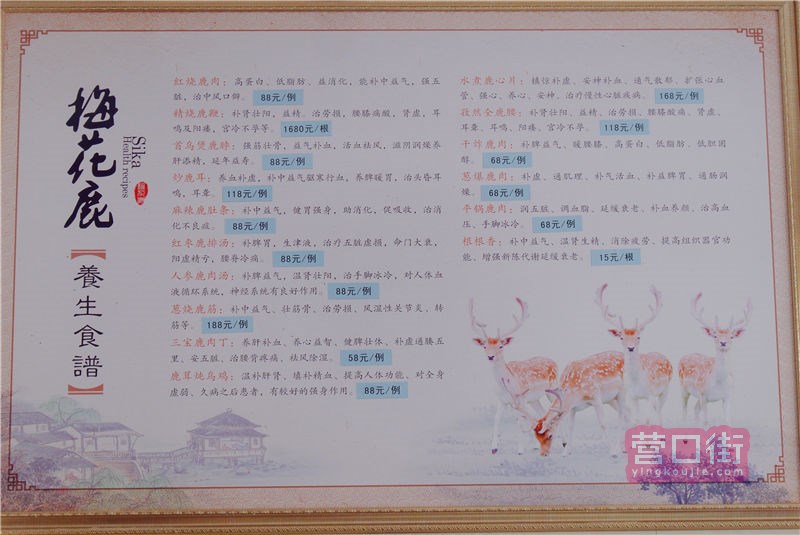 梅花鹿
Sika
Health recipes
【養生食譜】
红烧鹿肉：高蛋白、低脂肪、益消化，能补中益气，强五
脏，治中风口僻。 88元/例
精烧鹿鞭：补肾壮阳，益精。治劳损，腰膝痛酸，肾虚，耳
鸣及阳痿，宫冷不孕等。 1680元/根
首乌煲鹿脖：强筋壮骨，益气补血，活血祛风，滋阴润燥养
肝添精，延年益寿。 88元/例
炒鹿耳：养血补虚，补中益气驱寒行血，养脾暖胃，治头昏耳
鸣，耳聋。 118元/例
麻辣鹿肚条：补中益气，健胃强身，助消化，促吸收，治消
化不良症。 88元/例
红枣鹿排汤：补脾胃，生津液，治疗五脏虚损，命门大衰，
阳虚精亏，腰脊冷痛。 88元/例
人参鹿肉汤：补脾益气，温肾壮阳，治手脚冰冷，对人体血
液循环系统，神经系统有良好作用。 88元/例
葱烧鹿筋：补中益气、壮筋骨、治劳损、风湿性关节炎、转
筋等。 188元/例
三宝鹿肉丁：养肝补血、养心益智、健脾壮体、补虚通腠五
里、安五脏、治腰背疼痛，祛风除湿。 58元/例
鹿茸炖乌鸡：温补肝肾、填补精血、提高人体功能、对全身
虚弱、久病之后患者，有较好的强身作用。 88元/例
水煮鹿心片：镇惊补虚、安神补血、通气散郁、扩张心血
管、强心、养心、安神、治疗慢性心脏疾病。 168元/例
孜然全鹿腰：补肾壮阳、益精、治劳损、腰膝酸痛、肾虚、
耳聋、耳鸣、阳痿、宫冷不孕。 118元/例
干炸鹿肉：补脾益气、暖腰膝、高蛋白、低脂肪、低胆固
醇。 68元/例
葱爆鹿肉：补虚、通肌理、补气活血、补益脾胃、通肠润
燥。 68元/例
平锅鹿肉：润五脏、调血脂、延缓衰老、补血养颜、治高血
压、手脚冰冷。 68元/例
根根香：补中益气、温肾生精、消除疲劳、提高组织器官功
能、增强新陈代谢延缓衰老。 15元/根
营口街
yingkoujie.com